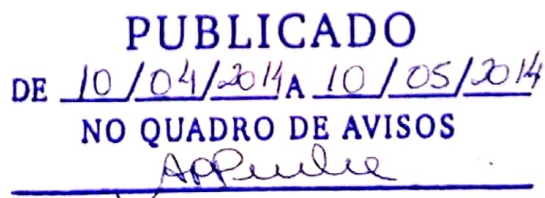 PUBLICADO
DE 10/04/2014 A 10/05/2014
NO QUADRO DE AVISOS